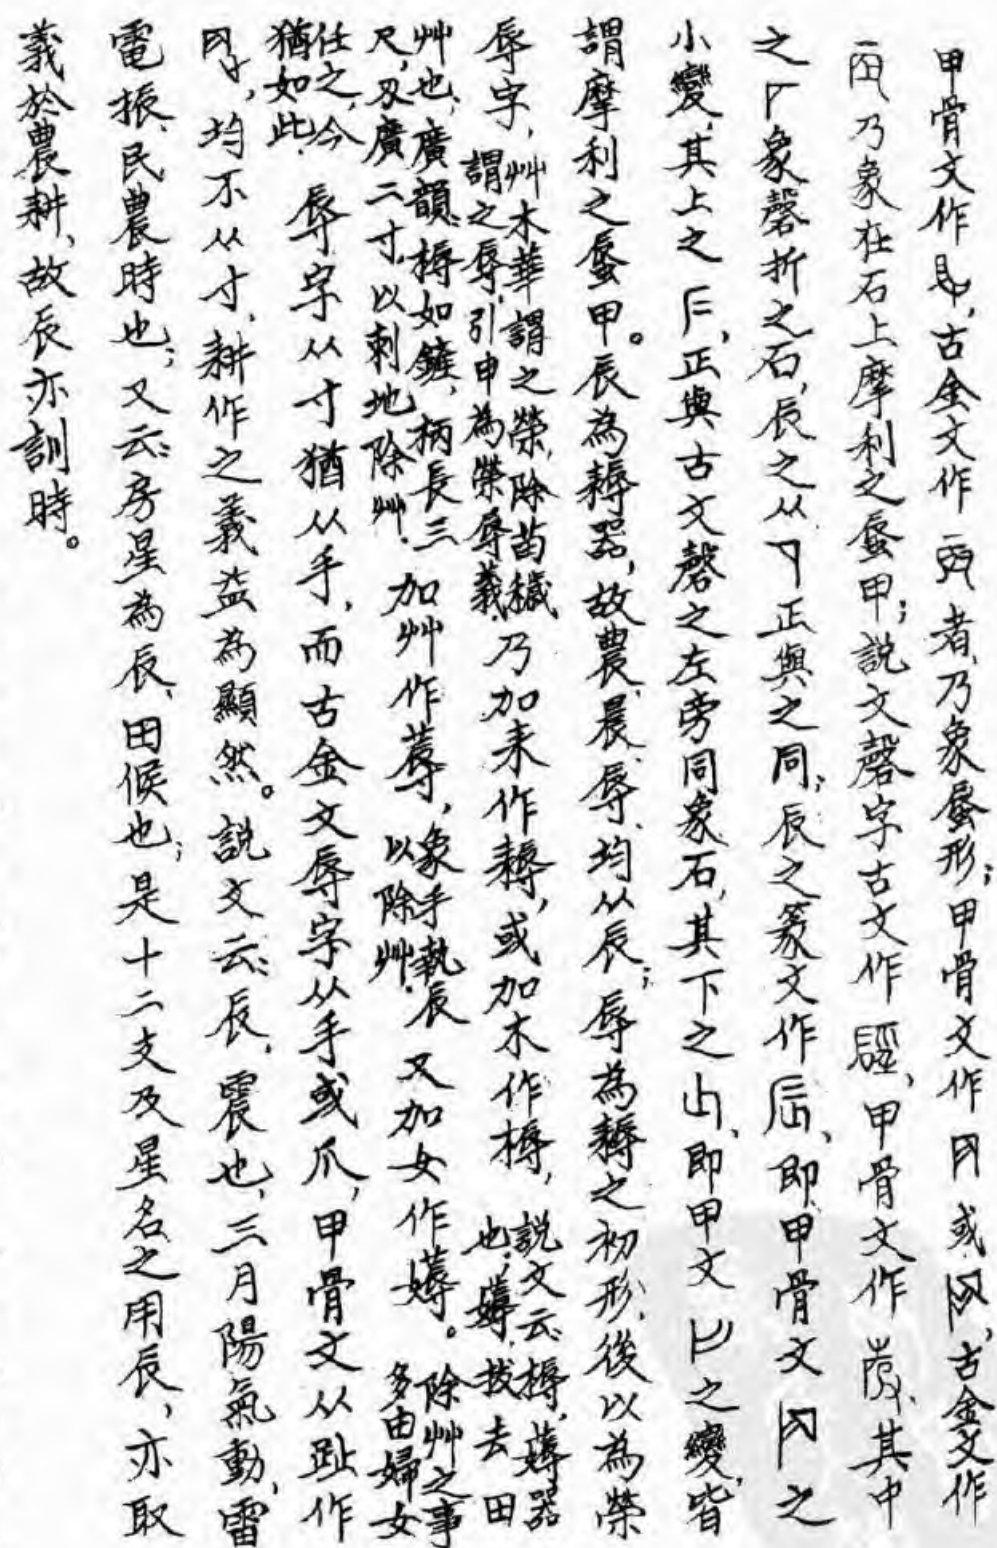 甲骨文作，古金文作者，乃象蜃形；甲骨文作或，古金文作
乃象在石上摩利之蜃甲；説文磬字古文作，甲骨文作，其中
之象磬折之石，辰之从正與之同；辰之篆文作，即甲骨文之
小變，其上之，正與古文磬之左旁同象石，其下之，即甲文之變，皆
謂摩利之蜃甲。辰為耨器，故農、晨、辱、均从辰；辱為耨之初形，後以為榮
辱字，艸木華謂之榮，除苗穢謂之辱，引申為榮辱義。乃加耒作耨，或加木作槈，説文云：槈，薅器也；薅，拔去田
艸也，廣韻：槈如鏟，柄長三尺，刃廣二寸，以刺地除艸。加艸作蓐，象手執辰以除艸。又加女作薅。除艸之事多由婦女
任之，今猶如此。辱字从寸猶从手，而古金文辱字从手或爪，甲骨文从趾作
，均不从寸，耕作之義益為顯然。説文云：辰，震也，三月陽氣動，雷
電振，民農時也；又云：房星為辰，田候也；是十二支及星名之用辰，亦取
義於農耕，故辰亦訓時。